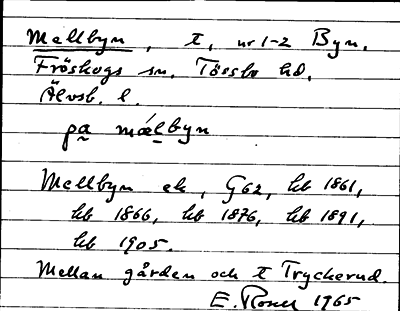 Mellbyn, t, nr 1-2 Byn.
Fröskogs sn. Tössbo hd.
Älvsb. l.
pa mǽlbyn
Mellbyn ek, G62, hb 1861,
hb 1866, hb 1876, hb 1891,
hb 1905.
Mellan gården och t Tryckerud.
E. 1965